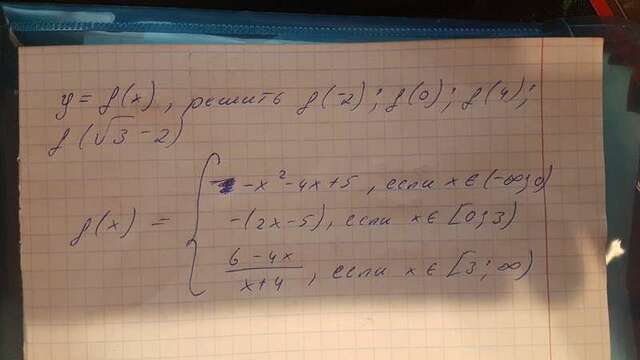 y = f(x), решить f(-2); f(0); f(4);
f(√3 - 2)
f(x) = { -x² - 4x + 5, если x ∈ (-∞; 0)
-(2x - 5), если x ∈ [0; 3)
(6 - 4x)/(x + 4), если x ∈ [3; ∞)